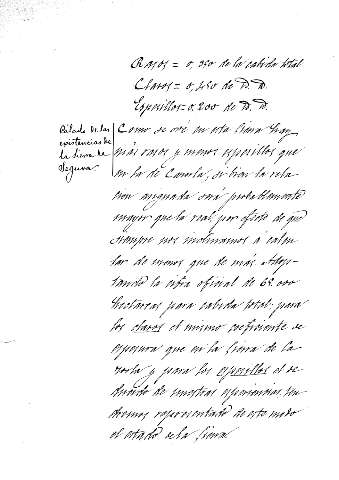 Rasos = 0,350 de la cabida total
Claros = 0,450 de D. D.
Espesillos = 0,200 de D. D.
Estado de las
existencias de
la Sierra de
Segura
Como se vé en esta Sierra hay
más rasos y menos espesillos que
en la de Cazorla, si bien la rela-
cion asignada será probablemente
mayor que la real por efecto de que
siempre nos inclinamos á calcu-
lar de menos que de más. Adop-
tando la cifra oficial de 68.000
hectáreas para cabida total; para
los claros el mismo coeficiente de
espesura que en la Sierra de Ca-
zorla y para los espesillos el de-
ducido de nuestras esperiencias, ten-
dremos representado de este modo
el estado de la Sierra